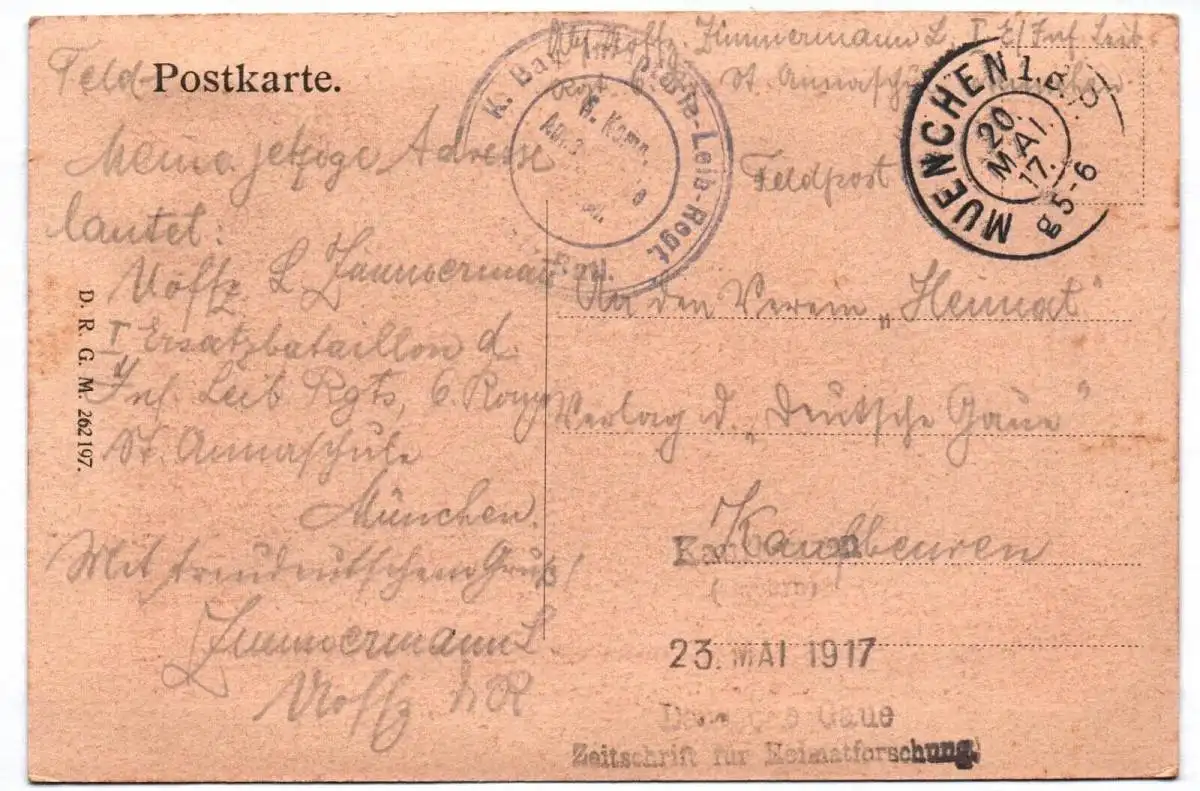 Feld- Postkarte.
Abs. Uoffz. Zimmermann L. I E/Inf. Leib-
Rgt. 6. St. Annaschule München
K. Bay. Infanterie-Leib-Regt.
6. Komp.
Feldpost
MUENCHEN 1. B.P.
20. MAI. 17.
5-6
Meine jetzige Adresse
lautet:
Uoffz L. Zimmermann
I Ersatzbataillon d.
Inf. Leib Rgts, 6. Komp
St. Annaschule
München.
Mit treudeutschem Gruß!
Zimmermann L.
Uoffz d. R
D. R. G. M. 262197.
An den Verein „Heimat"
Verlag d. „Deutsche Gaue"
Kaufbeuren
23. MAI 1917
Deutsche Gaue
Zeitschrift für Heimatforschung